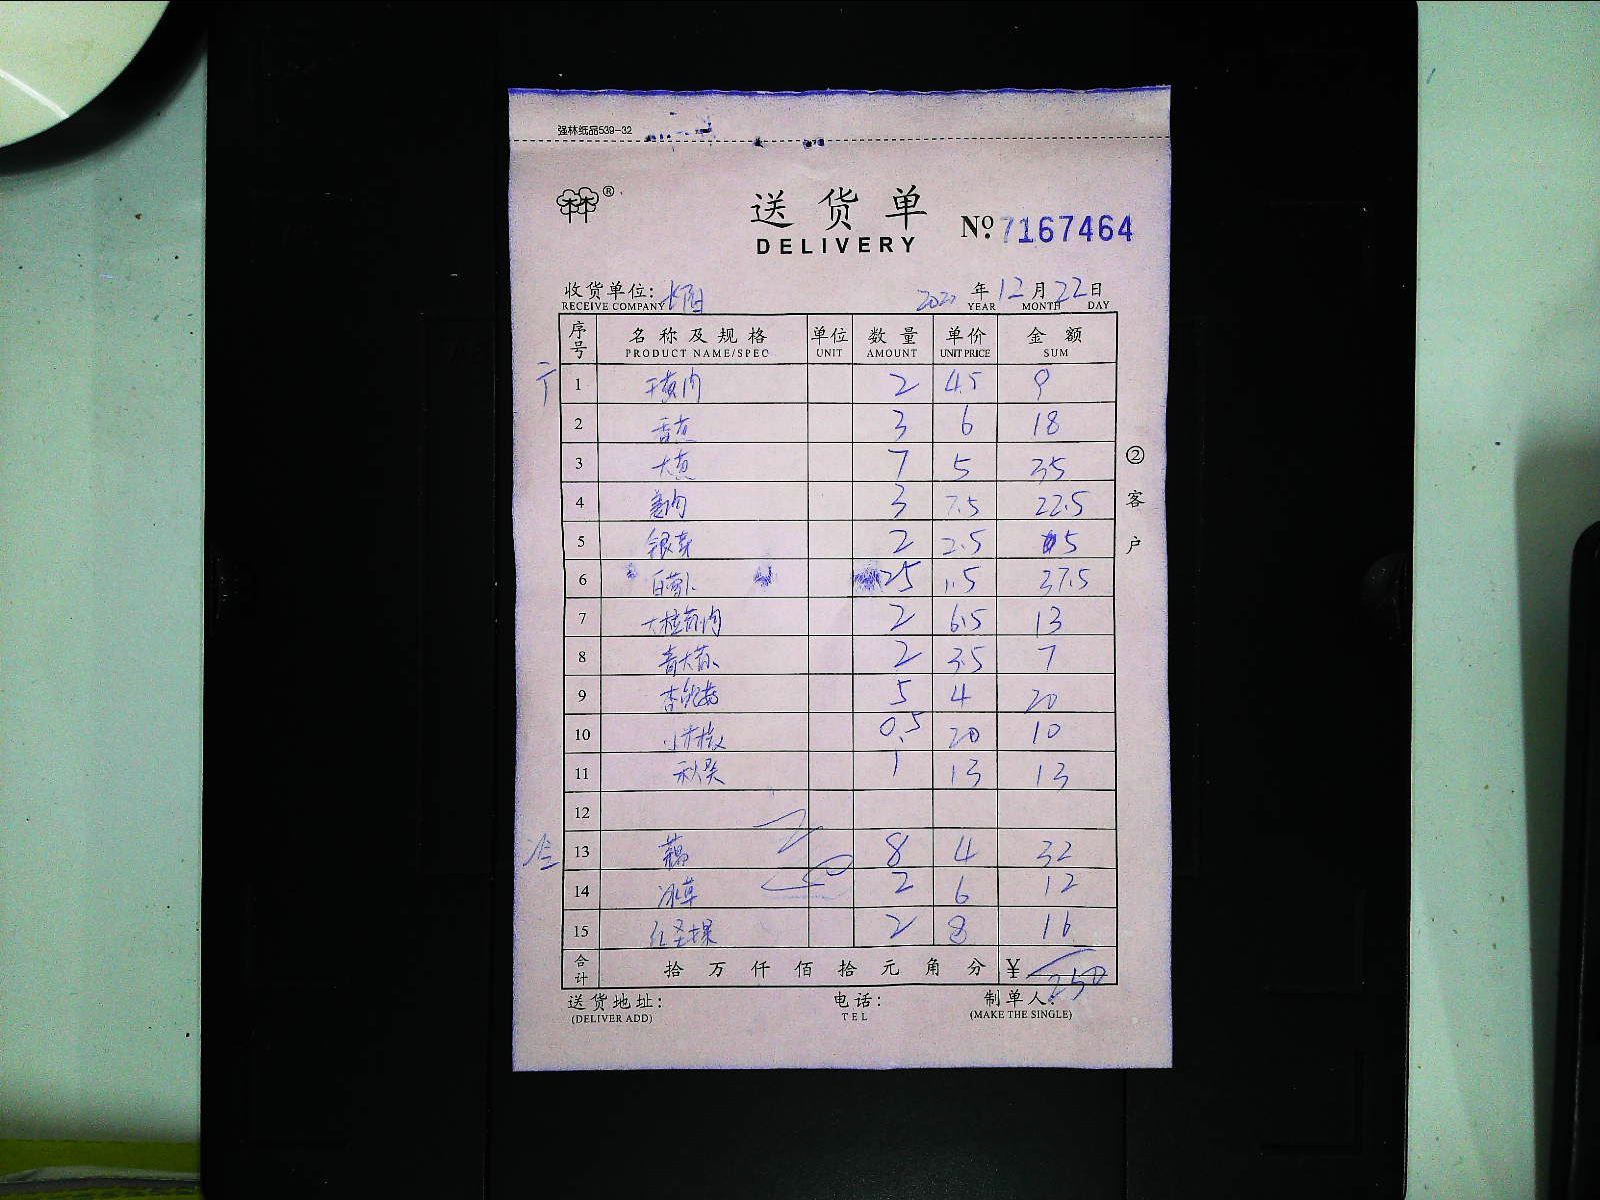 强林纸品539-32
®
送货单
Nº 7167464
DELIVERY
收货单位: 年 12 月 22 日
RECEIVE COMPANY YEAR MONTH DAY
序号 名称及规格 单位 数量 单价 金额
PRODUCT NAME/SPEC UNIT AMOUNT UNIT PRICE SUM
1 2 4.5 9
2 3 6 18
3 7 5 35
4 姜肉 3 7.5 22.5
5 银芽 2 2.5 5
6 白萝卜 25 1.5 37.5
7 2 6.5 13
8 2 3.5 7
9 杏鲍菇 5 4 20
10 0.5 20 10
11 秋葵 1 13 13
12
13 藕 8 4 32
14 冰草 2 6 12
15 红圣果 2 8 16
合计 拾 万 仟 佰 拾 元 角 分 ¥ 250
送货地址: 电话: 制单人:
(DELIVER ADD) TEL (MAKE THE SINGLE)
②客户